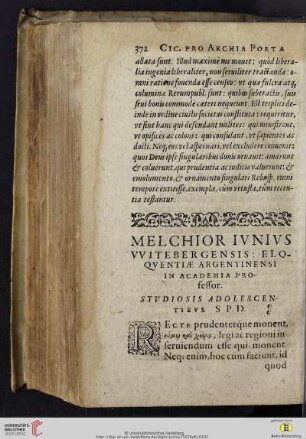 372 CIC. PRO ARCHIA POETA
allata sunt. Illud maximè me mouet: quòd libera-
lia ingenia liberaliter, non seruiliter tractanda: o-
mni ratione fouenda esse censeo: vt quæ fulcra atq;
columina Rerumpubl. sunt: quibus subtractis, suis
frui bonis commodè cæteri nequeunt.
de in ordine ciuili societas constituta requiritur,
vt sint hanc qui defendant milites: qui
vt opifices ac coloni: qui consulant, vt sapientes ac
docti. Neq; enim vel aspernari, vel excludere conuenit:
quos Deus ipse singularibus donis ornauit: amarunt
& coluerunt, qui prudentia ac iudicio valuerunt: &
emolumento, & ornamento singulari Rebusp. omni
tempore extitisse, exempla, cùm vetusta, tùm recen-
tia testantur.
MELCHIOR IVNIVS
VVITEBERGENSIS: ELO-
QVENTIÆ ARGENTINENSI
IN ACADEMIA PRO-
fessor.
STVDIOSIS ADOLESCEN-
TIBVS S.P.D.
RECTE prudenterque monent,
legi ac regioni in-
seruiendum esse qui monent
Neq; enim, hoc cum faciunt, id
quod
UNIVERSITÄTS-
BIBLIOTHEK
HEIDELBERG
© Universitätsbibliothek Heidelberg